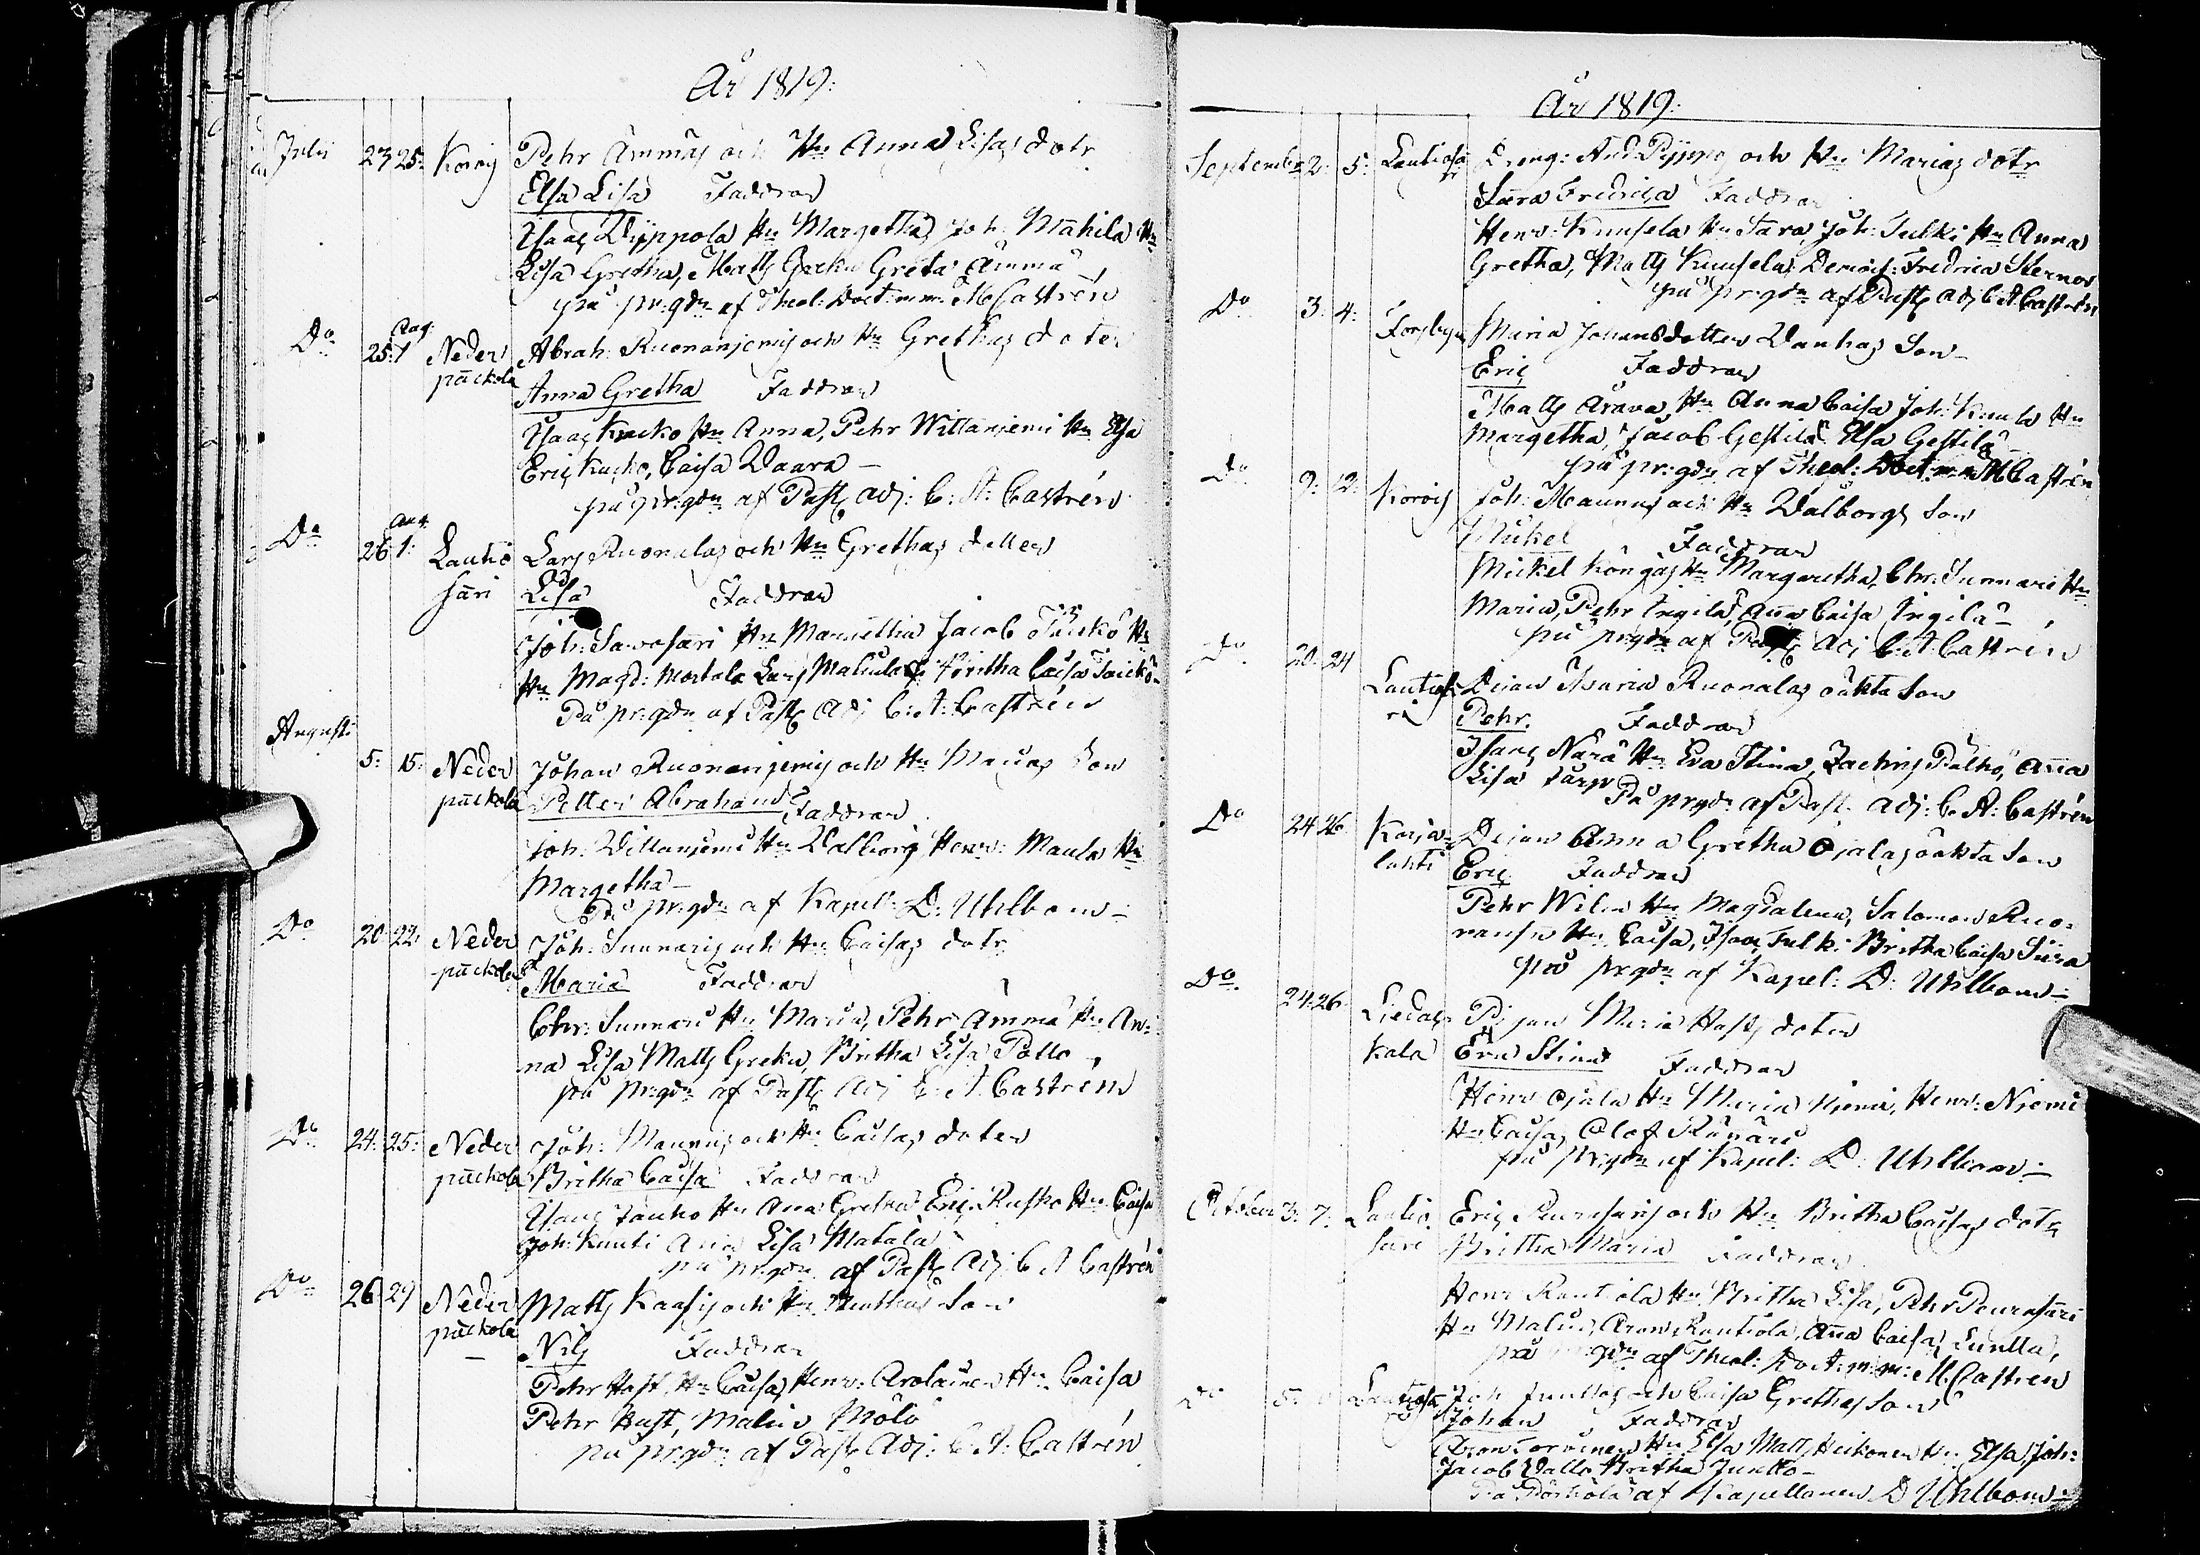 År 1819:
Julii 23 25: Korois Pehr Ämmäs och Hu Anna Lisas dotr
Elsa Lisa Faddrar
Isaac Hu Margetha, Joh: Mahila Hu
Lisa Gretha, Matts Greku Greta Ämmä
på pr:gdn af Theol: Doct: m:m: M Castrén
Do 25: Aug: 1 Neder Abrah: Ruonanjemis och Hu Grethas doter
päckola Anna Gretha Faddrar
Isaac Kucko Hu Anna, Pehr Wittanjemi Hu Elsa
Eric Kucko, Caisa Waara –
på pr:gdn af Past: adj: C: A: Castrén
Do 26 Aug. 1: Lautio Lars Ruonalas och Hu Grethas dotter
säri Lisa Faddrar
Joh: Sawosari Hu Jacob Hu
Hu Magd: Mortala Lars Britha Caisa
På pr:gdn af Past: Adj C: A: Castrén
Augusti 5: 15: Neder Johan Ruonanjemis och Hu Marias Son
päckola Petter Abraham Faddrar
Joh: Wittanjemi Hu Walborg, Henr: Maula Hu
Margetha –
På pr:gdn af Kapell: D: Uhlbom –
Do 20 22: Neder Joh: Sunnaris och Hu Caisas dotr
päckola Maria Faddrar
Chr: Sunnari Hu Maria, Pehr Ämmä Hu An-
na Lisa Matts Greku, Britha Lisa Pallo
på pr:gdn af Past: Adj C: A: Castrén
Do 24: 25: Neder Joh: Maunus och Hu Caisas doter
päckola Britha Caisa Faddrar
Isaac Hu Ana Gretha Eric Rusko Hu Caisa
Joh: Knuti Ana Lisa Matala
på pr:gdn af Past: Adj C A Castrén
Do 26 29 Neder Matts och Hu Son
päckola Nils Faddrar
Pehr Hast, Hu Caisa, Henr: Arolainen Hu Caisa
Pehr Hast, Malin
på pr:gdn af Past: Adj: C: A: Castrén
År 1819:
September 2: 5: Lautiosä Dreng: And: Pyppo och Hu Marias dotr
Sara Fredrica Faddrar
Henr: Knusela Hu Sara, Joh: Julki Hu Anna
Gretha, Matts Knusela Demois: Fredrica
på pr:gdn af Past: adj C A Castrén
Do 3: 4: Forsbyn Maria Johansdotter Wanhas Son –
Eric Faddrar
Matts Arava, Hu Anna Caisa Joh: Hu
Margetha, Jacob Gestilä Elsa Gestilä –
på pr:gdn af Theol: Doct: m:m M Castrén
Do 9: 12: Korois Joh: Maunus och Hu Walborgs Son
Mickel Faddrar
Mickel Köngäs Hu Margaretha, Chr. Sunnari Hu
Maria, Pehr Ingilä, Ana Caisa Ingilä –
på pr:gdn af Past: Adj C: A: Castrén
Do 20: 24 Lautiosä Pigan Maria Ruonalas oäkta Son
ri Pehr. Faddrar
Isaac Närä Hu Eva Stina, Palko, Ana
Lisa
På pr:gdn af Past: adj: C. A: Castrén
Do 24 26 Korja- Pigan Anna Gretha Ojalas oäkta Son
lahti Eric Faddrar
Pehr Hu Magdalena, Salomon Ruo-
Hu Caisa, Isaac Julki Britha Caisa
på pr:gdn af Kapel: D: Uhlbom –
Do. 24: 26 Liedak- Pigan Maria Hasts doter
kala Eva Stina Faddrar
Henr Ojala Hu Maria Niemi, Henr: Niemi
Hu Caisa, Olof
på pr:gdn af Kapel: D: Uhlbom –
October 3: 7: Lautio Eric och Hu Britha Caisas dotr
sari Britha Maria Faddrar
Henr Rantiola Hu Britha Lisa, Pehr
Hu Malin, Aron Rantiola, Ana Caisa
på gdn af Theol: Doct: m:m: M. Castren
Do 5: Lautiosa Joh och Caisa Grethas Son
Johan Faddrar
Aron Hu Elsa Matts Heikonen Hu Elsa, Joh:
Jacob Britha
af Kapellanen D Uhlbom –